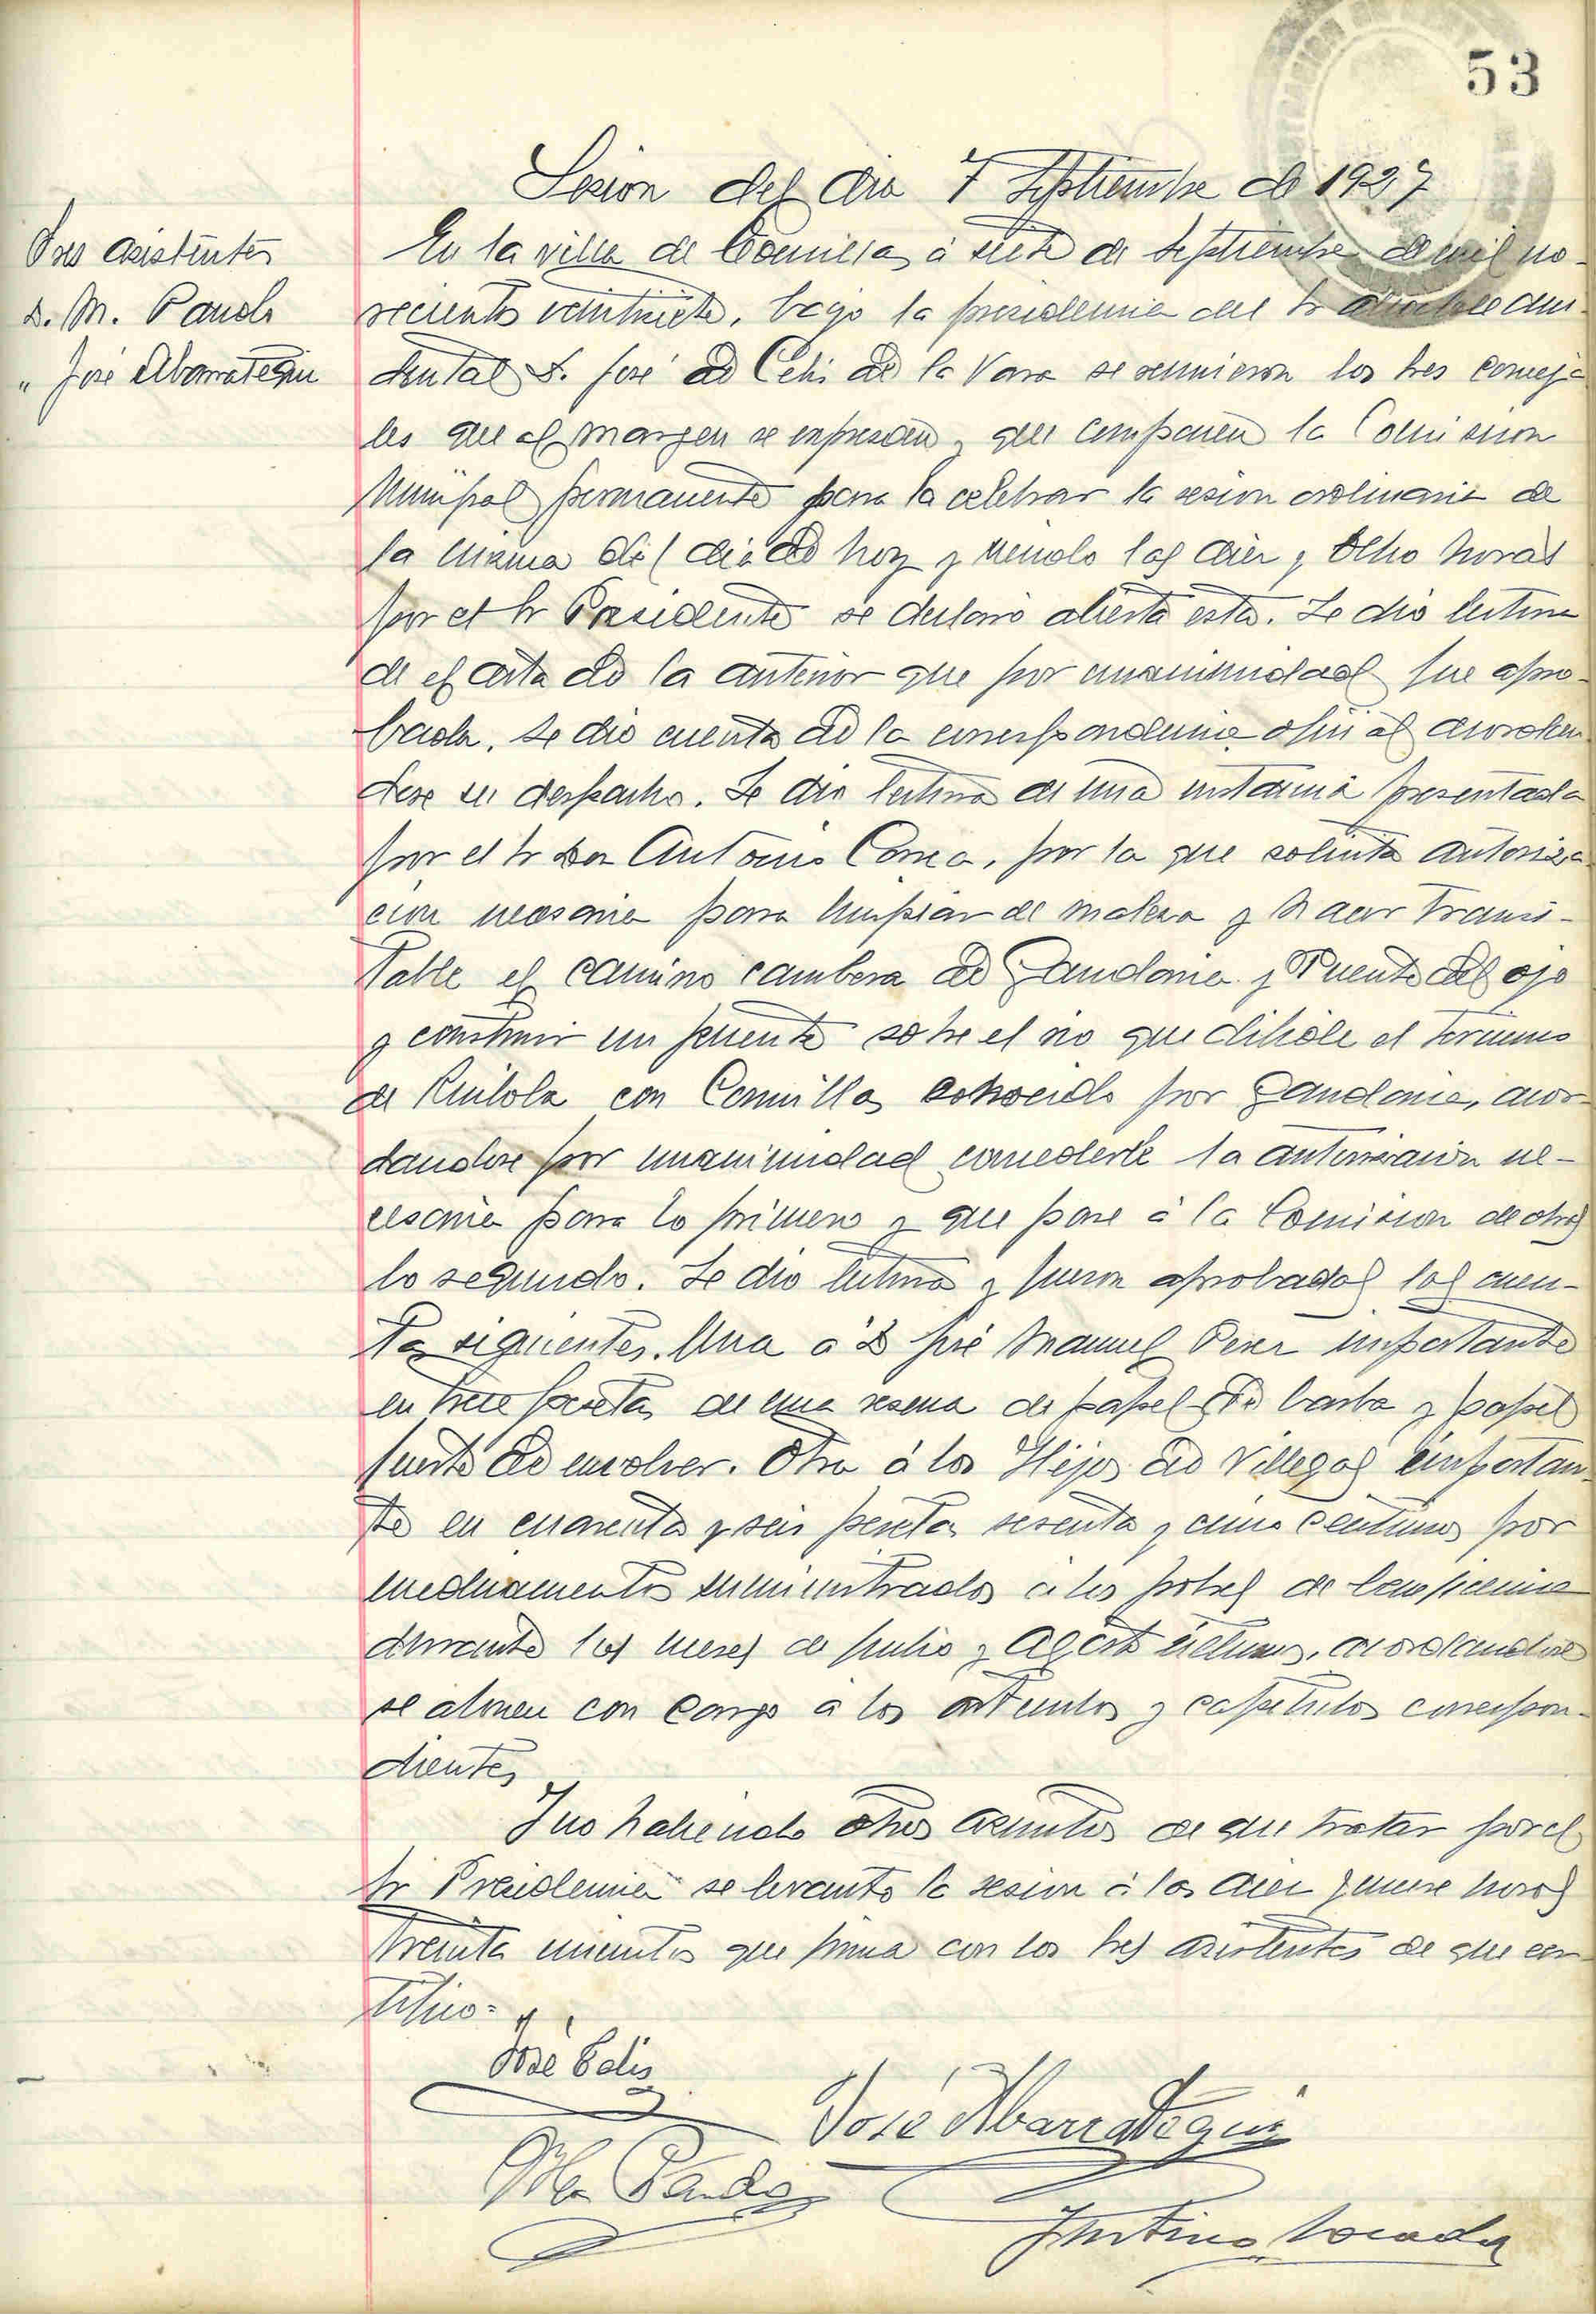 53
Sesion del dia 7 Septiembre de 1927
Sres asistentes
D. M. Pando
" José Abarrategui
En la villa de Comillas á siete de Septiembre de mil no-
vecientos veintisiete, bajo la presidencia del Sr Alcalde acci-
dental D. José de Celis de la Vara se reunieron los tres conceja
les que al margen se expresan y que componen la Comision
Municipal permanente para la celebrar la sesion ordinaria de
la misma del dia de hoy y siendo las diez y ocho horas
por el Sr Presidente se declaró abierta esta. Se dio lectura
de el acta de la anterior que por unanimidad fue apro-
bada. Se dio cuenta de la correspondencia oficial acordan
dose su despacho. Se dio lectura de una instancia presentada
por el Sr Don Antonio Correa, por la que solicita autoriza
cion necesaria para limpiar de maleza y hacer transi-
table el camino cambera de Gandaria y Puente del ojo
y construir un puente sobre el rio que divide el termino
de Ruiloba con Comillas conocido por Gandaria, acor-
dandose por unanimidad concederle la autorizacion ne-
cesaria para lo primero y que pase á la Comision de obras
lo segundo. Se dio lectura y fueron aprobadas las cuen-
tas siguientes. Una a D José Manuel Perez importante
en trece pesetas de una resma de papel de barba y papel
fuerte de envolver. Otra á los Hijos de Villegas importan-
te en cuarenta y seis pesetas sesenta y cinco centimos por
medicamentos suministrados a los pobres de beneficencia
durante los meses de Julio y Agosto ultimos, acordandose
se abonen con cargo a los articulos y capitulos correspon-
dientes
Y no habiendo otros asuntos de que tratar por el
Sr Presidencia se levanto la sesion á las diez y nueve horas
treinta minutos que firma con los Sres asistentes de que cer-
tifico=
José Celis
José Abarrategui
M Pando